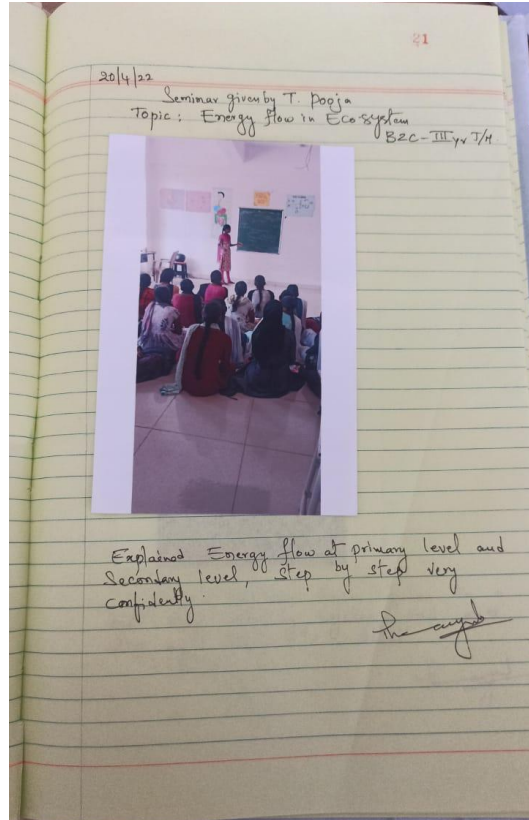 21
20/4/22
Seminar given by T. Pooja
Topic: Energy flow in Ecosystem
BZC-III yr T/M
Explained Energy flow at primary level and
Secondary level, step by step very
confidently.